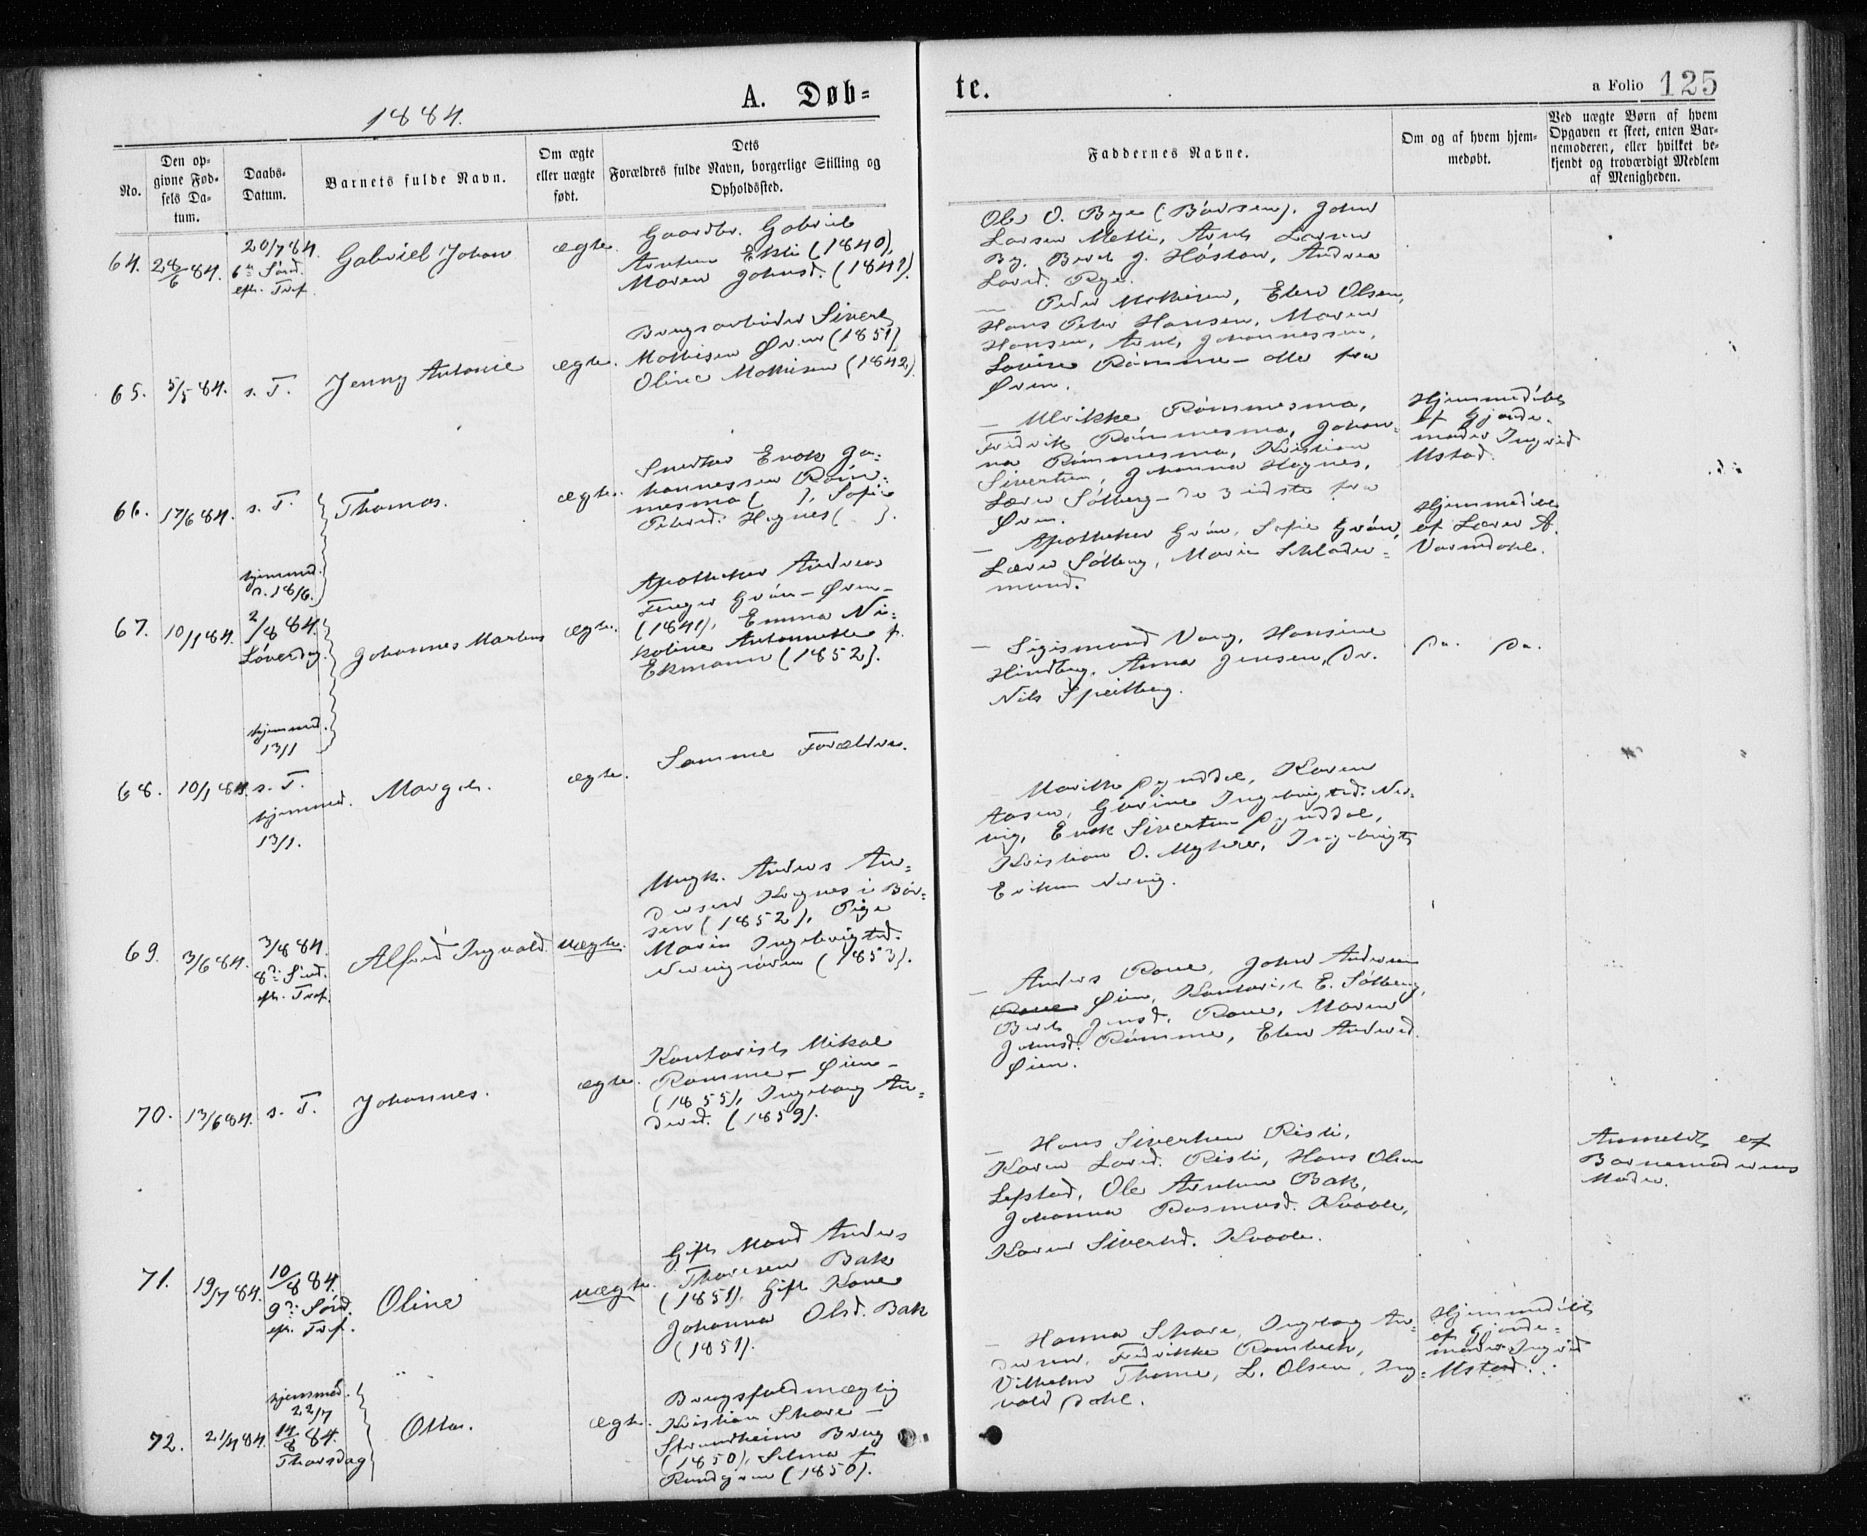 1884.
A. Døb=
te.
a Folio 125
No.
Den op-
givne Fød-
sels Da-
tum.
Daabs-
Datum.
Barnets fulde Navn.
Om ægte
eller uægte
født.
Dets
Forældres fulde Navn, borgerlige Stilling og
Opholdssted.
Faddernes Navne.
Om og af hvem hjem-
medøbt.
Ved uægte Børn af hvem
Opgaven er skeet, enten Bar-
nemoderen, eller hvilket be-
kjendt og troværdigt Medlem
af Menigheden.
64.
28/6 84.
20/7 84.
6te Sønd.
eft. Tref.
Gabriel Johan
ægte.
Gaardbr. Gabriel
Arntsen Ekli (1840),
Maren Johnsd. (1841).
Ole O. Bye (Børsen), John
Larsen Melli, Arnt Larsen
By, Beret J. Høston, Andrea
Larsd. Bye.
65.
5/5 84.
s. T.
Jenny Antonie
ægte.
Brugsarbeider Sivert
Mathisen Øren (1851)
Oline Mathisen (1842).
— Peder Mathisen, Elen Olsen,
Hans Peter Hansen, Maren
Hansen, Arnt Johannessen,
Lovise Rømme – alle fra
Øren.
66.
17/6 84.
s. T.
hjemmed.
d. 18/6.
Thomas.
ægte.
Snedker Enok Jo-
hannessen Røm-
mesmo ( ), Sofie
Petersd. Hognes ( ).
— Ulrikke Rømmesmo,
Fredrik Rømmesmo, Johan-
na Rømmesmo, Kristian
Sivertsen, Johanna Hognes,
Lærer Sølberg – de 3 sidste fra
Øren.
Hjemmedøbt
af Gjorde-
moder Ingrid
Ustad.
67.
10/1 84.
2/8 84.
Løverdag.
hjemmed.
13/1
Johannes Martens
ægte.
Apotheker Andreas
Finger Grøn – Øren –
(1841), Emma Ni-
koline Antonnette f.
Ekmann (1852).
— Apotheker Grøn, Sofie Grøn,
Lærer Sølberg, Marie Schlader-
mund.
Hjemmedøbt
af Lærer A.
Varmdahl.
68.
10/1 84.
s. T.
hjemmed.
13/1.
Margit.
ægte.
Samme Forældre.
— Sigismund Vang, Hansine
Hindberg, Anna Jensen, Dr.
Nils Speilberg.
Do. Do.
69.
3/6 84.
3/8 84.
8de Sønd.
eft. Tref.
Alfred Ingvald.
uægte.
Ungk. Anders An-
dersen Hognes i Bør-
sen (1852), Pige
Marit Ingebrigtsd.
(1853).
Aasen, Gurine Ingebrigtsd. Ner-
vig, Enok Sivertsen
Kristian O. Myhre, Ingebrigt
Eriksen Nervig.
70.
13/6 84.
s. T.
Johannes.
ægte.
Kontorist Mikal
Rømme – Øien –
(1855), Ingeborg An-
dersd. (1859).
— Anders Rove, John Andersen
Øien, Kontorist E. Sølberg,
Beret Jensd. Rove, Maren
Johnsd. Rømme, Elen Andersd.
Øien.
71.
19/7 84.
10/8 84.
9de Sønd.
eft. Tref.
Oline
uægte.
Gift Mand Anders
Thoresen Bak
(1851), Gift Kone
Johanna Olsd. Bak
(1851).
— Hans Sivertsen Risli,
Karen Larsd. Risli, Hans Olsen
Lefstad, Ole Arntsen Bak,
Johanna Rasmusd. Kvaale,
Karen Sivertsd. Kvaale.
Anmeldt af
Barnemoderens
Moder.
72.
21/7 84.
hjemmed.
22/7
14/8 84.
Thorsdag
Otto.
ægte.
Brugsfuldmægtig
Kristian Skare –
Strandheim Brug
(1850), Selma f.
Rundgren (1850).
— Hanna Skare, Ingeborg An-
dersen, Fredrikke Rambech,
Vilhelm Thome, L. Olsen, Ing-
vald Dahl.
Hjemmedøbt
af Gjorde-
moder Ingrid
Ustad.